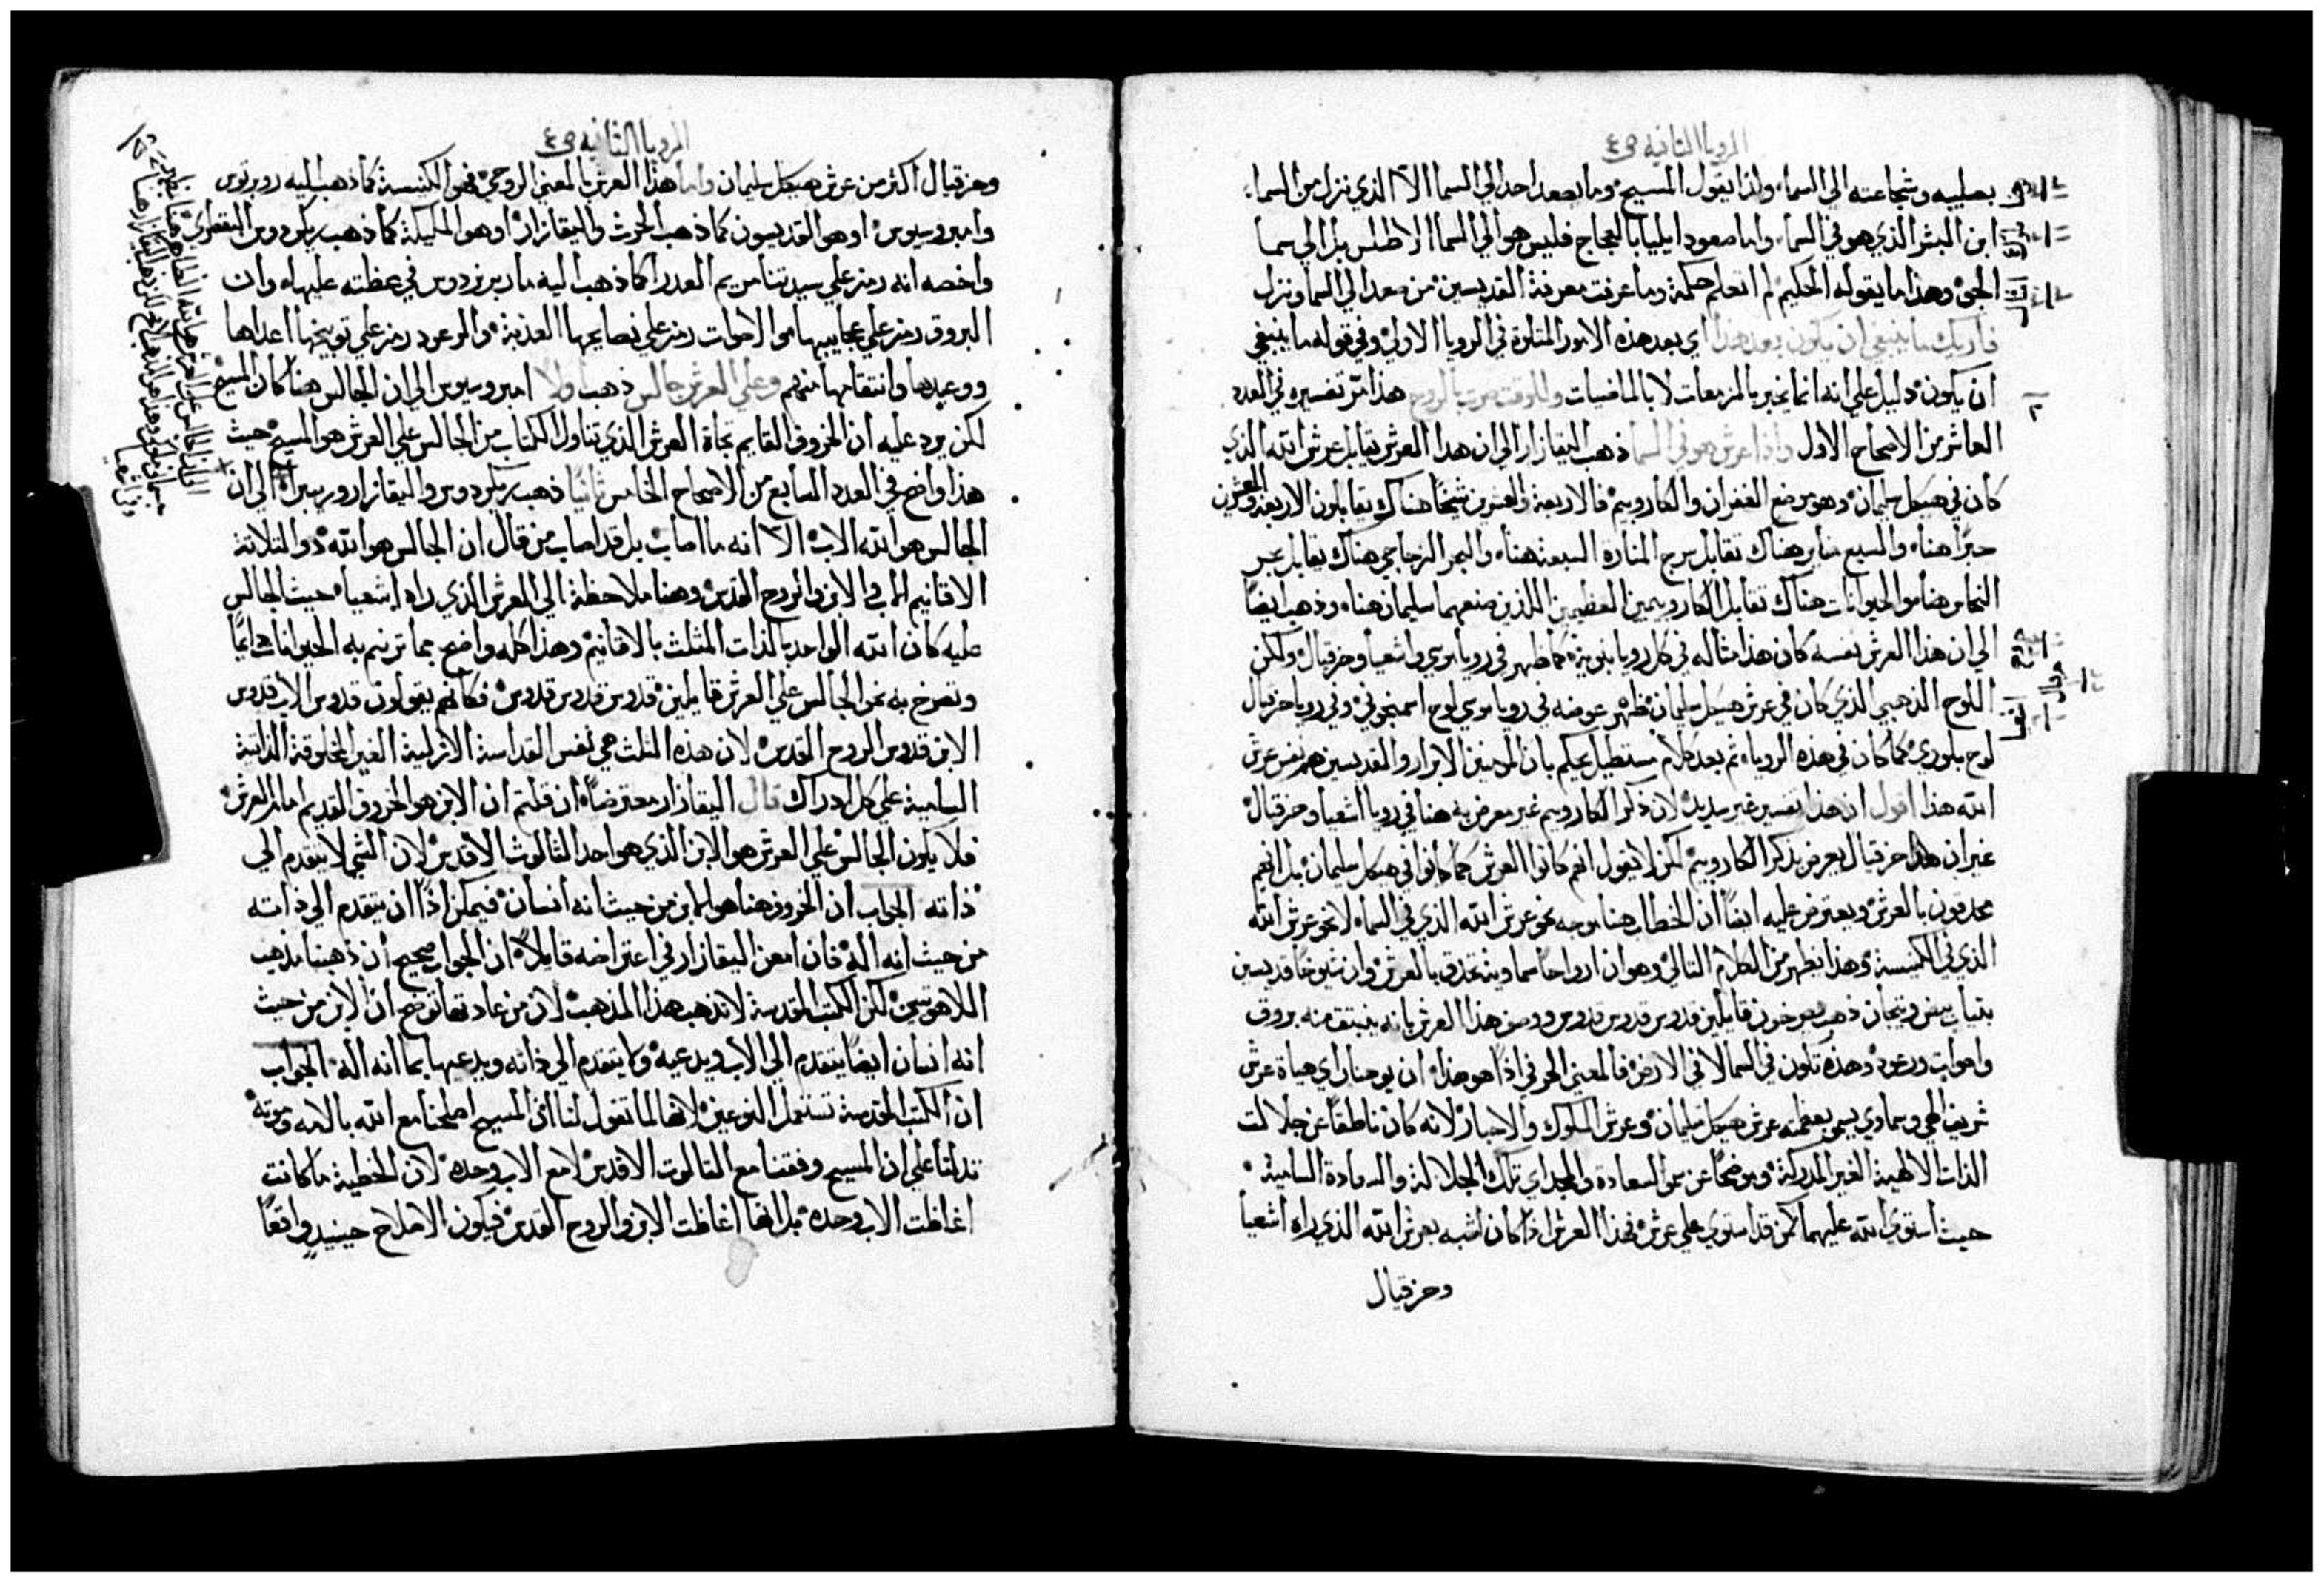 الرويا الثانيه ص٤
بصليبه وشجاعته الي السماء ولذا يقول المسيح وما يصعد احد الي السما الا الذي نزل من السماء
ابن البشر الذي هو في السماء واما صعود ايليا بالعجاج فليس هو الي السما الاطلس بل الي سما
الجو وهذا ما يقوله الحكيم لم اتعلم حكمة وما عرفت معرفة القديسين من صعد الي السما ونزل
فاريك ما ينبغي ان يكون بعد هذا اي بعد هذه الامور المتلوة في الرويا الاولي وفي قوله ما ينبغي
ان يكون دليل علي انه انما يخبر بالمزمعات لا بالماضيات وللوقت صرت بالروح هذا مر تفسيره في العدد
العاشر من الاصحاح الاول واذا عرش هو في السما ذهب اليقازار الي ان هذا العرش يقابل عرش الله الذي
كان في هيكل سليمان وهو موضع الغفران والكاروبيم فالاربعة والعشرين شيخا هناك يقابلون الاربعة والعشرين
حبرا هنا والسبع مناير هناك تقابل سرج المنارة السبعة هنا والبحر الزجاجي هناك يقابل بحر
النحاس هنا والحيوانات هناك تقابل الكاروبيمين العظيمين اللذين صنعهما سليمان هنا وذهب ايضا
الي ان هذا العرش نفسه كان هذا مثاله في كل رويا نبوية كما ظهر في رويا موسي واشعيا وحزقيال ولكن
اللوح الذهبي الذي كان في عرش هيكل سليمان ظهر عوضه في رويا موسي لوح اسمنجوني وفي رويا حزقيال
لوح بلوري كما كان في هذه الرويا ثم بعد كلام مستطيل يحكم بان المومنين الابرار والقديسين هم نفس عرش
الله هذا اقول ان هذا تفسير غير سديد لان ذكر الكاروبيم غير معرض به هنا في رويا اشعيا وحزقيال
غير ان هذا حزقيال يعرض بذكر الكاروبيم لكن لا يقول انهم كانوا العرش كما كانوا في هيكل سليمان بل انهم
محدقون بالعرش ويعترض عليه ايضا ان الخطاب هنا يوجه نحو عرش الله الذي في السماء لا نحو عرش الله
الذي في الكنيسة وهذا يظهر من الكلام التالي وهو ان ارواحا سماوية تحدق بالعرش وان شيوخا قديسين
بثياب بيض وتيجان ذهب يصرخون قايلين قدوس قدوس قدوس ووصف هذا العرش بانه ينبثق منه بروق
واصوات ورعود وهذه تكون في السما لا في الارض فالمعني الحرفي اذا هو هذا ان يوحنا راي هياة عرش
شريف الهي وسماوي يسمو بعظمته عرش هيكل سليمان وعرش الملوك والاحبار لانه كان ناطقا عن جلالت
الذات الالهية الغير المدركة وموضحا عن سمو السعادة والمجد اي تلك الجلالة والسعادة السامية
حيث استوي الله عليهما كمن قد استوي علي عرش فهذا العرش اذا كان اشبه بعرش الله الذي راه اشعيا
وحزقيال
الرويا الثانيه ص٤
وحزقيال اكثر من عرش هيكل سليمان واما هذا العرش بالمعني الروحي فهو الكنيسة كما ذهب اليه روبرتوس
وامبروسيوس او هو القديسون كما ذهب الحرث واليقازار او هو المليكة كما ذهب ريكردوس البقطري
واخصه انه رمز علي سيدتنا مريم العذرا كما ذهب اليه مار برنردوس في عظته عليها وان
البروق رمز علي عجايبها والاصوات رمز علي نصايحها العذبة والرعود رمز علي توبيخها اعداها
ووعيدها وانتقامها منهم وعلي العرش جالس ذهب اولا امبروسيوس الي ان الجالس هنا كان المسيح
لكن يرد عليه ان الخروف القايم تجاة العرش الذي تناول الكتاب من الجالس علي العرش هو المسيح حيث
هذا واضح في العدد السابع من الاصحاح الخامس ثانيا ذهب ريكردوس واليقازار وربيرا الي ان
الجالس هو الله الاب الا انه ما اصاب بل قد اصاب من قال ان الجالس هو الله ذو الثلاثة
الاقانيم الاب والابن والروح القدس وهنا ملاحظة الي العرش الذي راه اشعيا حيث الجالس
عليه كان الله الواحد بالذات المثلث بالاقانيم وهذا كله واضح بما ترنم به الحيوانات دايما
وتصرخ به نحو الجالس علي العرش قايلين قدوس قدوس قدوس فكانهم يقولون قدوس الاب قدوس
الابن قدوس الروح القدس لان هذه الثلث هي نفس القداسة الازلية الغير المخلوقة الذاتية
السامية علي كل ادراك قال اليقازار معترضا ان قلتم ان الابن هو الخروف القديم امام العرش
فلا يكون الجالس علي العرش هو الابن الذي هو احد الثالوث الاقدس لان الشي لا يتقدم الي
ذاته الجواب ان الخروف هنا هو الابن من حيث انه انسان فيمكن اذا ان يتقدم الي ذاته
من حيث انه اله فان امعن اليقازار في اعتراضه قايلا ان الجواب صحيح ان ذهبنا مذهب
اللاهوتيين لكن الكتب المقدسة لا تذهب هذا المذهب لان من عادتها توضح ان الابن من حيث
انه انسان ايضا يتقدم الي الاب ويدعيه ولا يتقدم الي ذاته ويدعيها بما انه اله الجواب
ان الكتب المقدسة تستعمل النوعين لانها لما تقول لنا ان المسيح اصلحنا مع الله بالامه وموته
تدلنا علي ان المسيح وفقنا مع الثالوث الاقدس لا مع الاب وحده لان الخطية ما كانت
اغاظت الاب وحده بل ايضا اغاظت الابن والروح القدس فيكون الاصلاح حينيذ واقعا